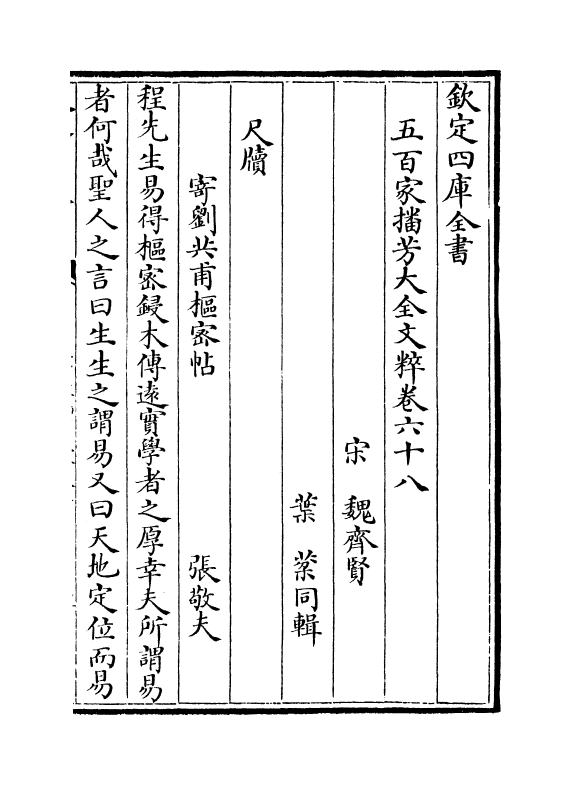 欽定四庫全書
五百家播芳大全文粹卷六十八
宋 魏齊賢
葉 棻同輯
尺牘
寄劉共甫樞宻帖 張敬夫
程先生易得樞宻鋟木傳逺實學者之厚幸夫所謂易
者何哉聖人之言曰生生之謂易又曰天地定位而易